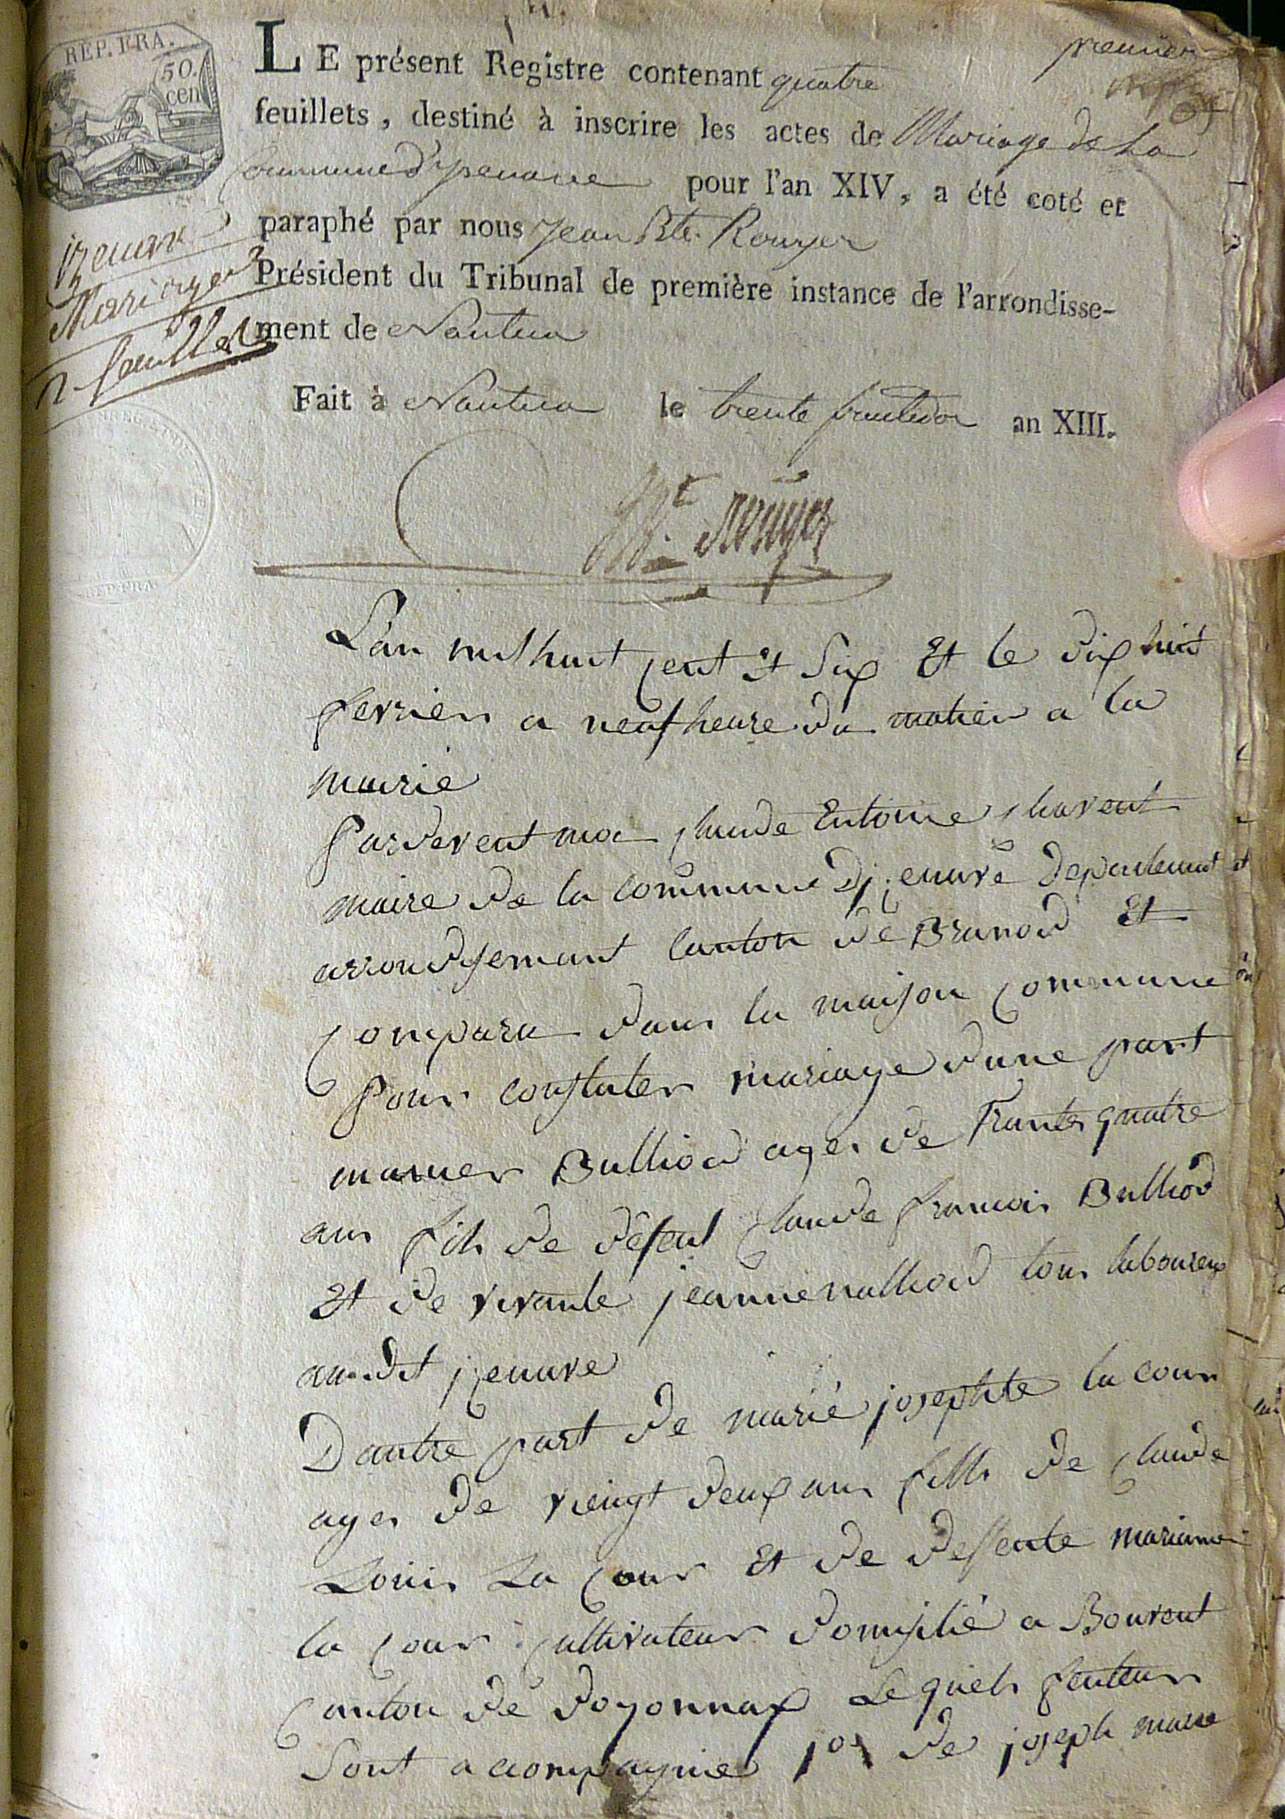 REP. FRA.
50.
cen
premier
LE présent Registre contenant quatre
feuillets, destiné à inscrire les actes de Mariage de La
Commune d'yzenave pour l'an XIV, a été coté et
paraphé par nous Jean Bte. Rouyer
Président du Tribunal de première instance de l'arrondisse-
ment de Nantua
yzenave
Mariages
feuillets
Fait à Nantua le trente fructidor an XIII.
REP. FRA.
Bt. Rouyer
L'an mil huit cent et six Et le dix huit
fevrier a neuf heure du matien a la
mairie
Pardevent moi claude Entoine charent
maire de la commune Dizenave depertement et
arrondisemant canton de Brenod Et
compara dans la maison commune
pour constater mariage d'une part
Bulliod ages de Trante quatre
ans fils de defent claude francois Bulliod
Et de vivante jeanne nalliod tous laboureux
audit izenave
Dautre part de marie josephte la cour
ages de viengt deux ans fille de claude
Louis La cour Et de deffente mariane
la cour cultivateur domisilié a Bouvent
canton de doyonnax Lequels feuteur
sont accompagnie 1o de joseph marie